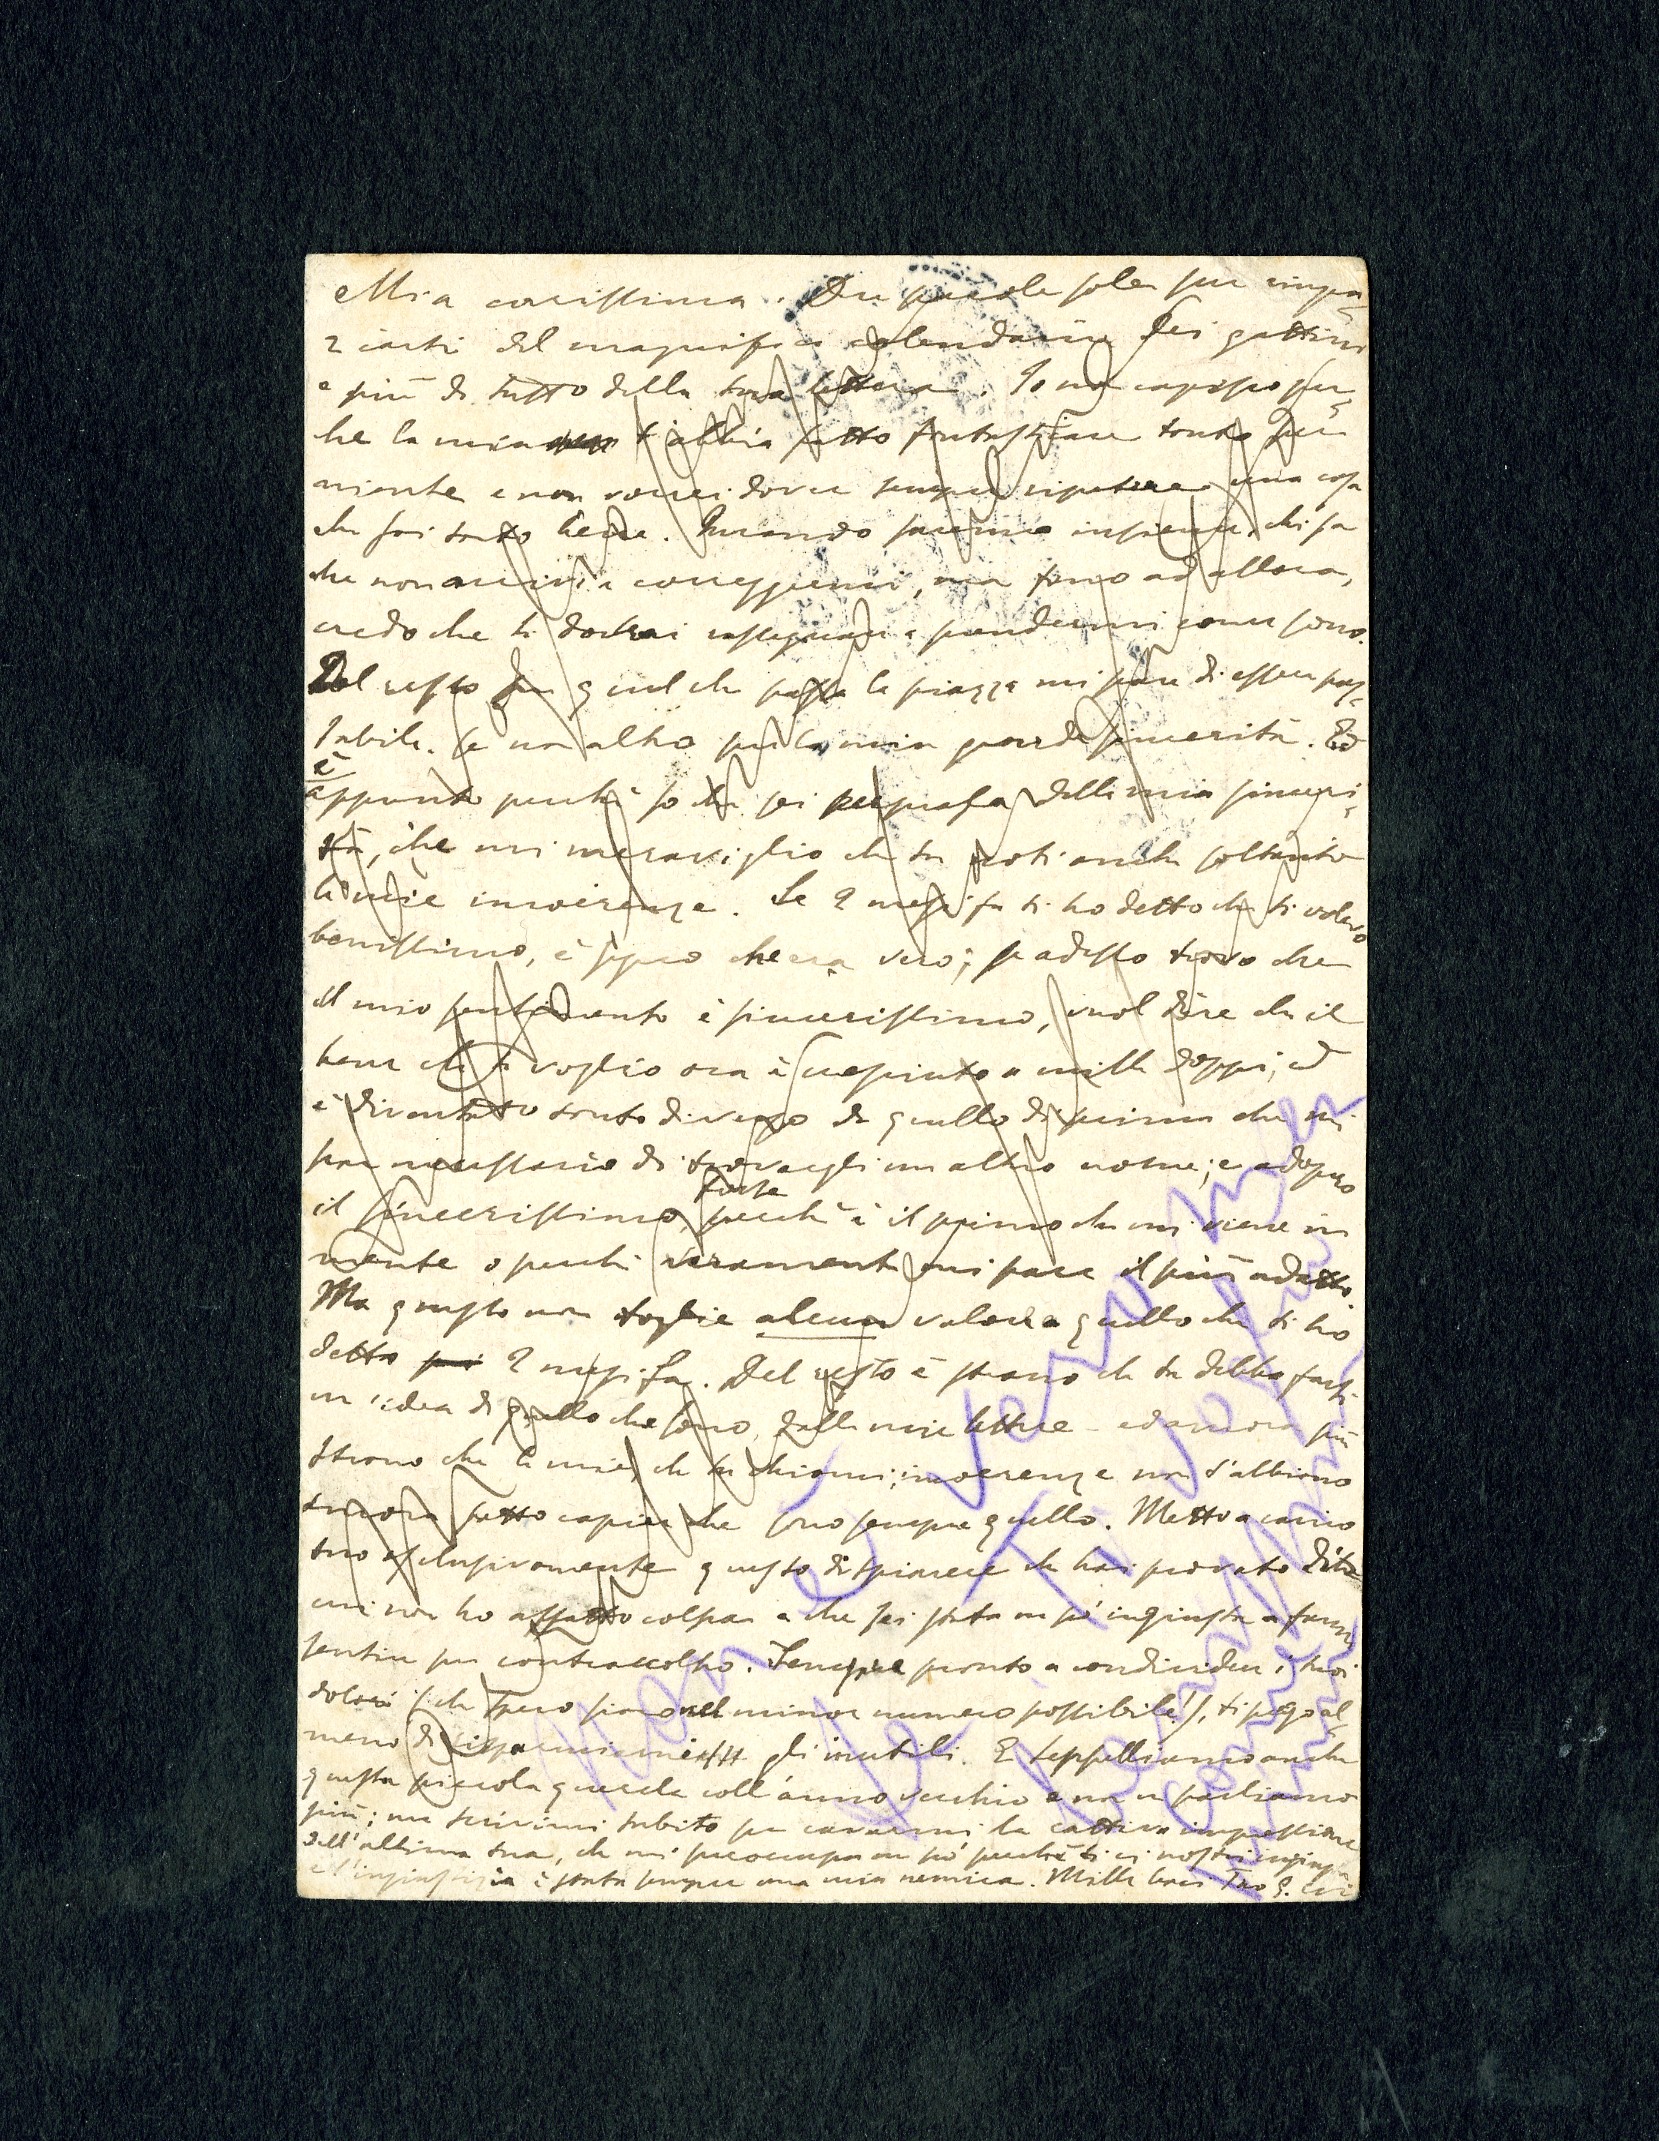 Mia carissima. Due parole sole per ringra-
ziarti del magnifico calendario dei gattini
e più di tutto della tua lettera. Io non capisco per-
chè la mia t'abbia fatto fantasticare tanto per
niente e non vorrei dover sempre ripetere una cosa
che sai tanto bene. Quando saremo insieme, chi sa
che non arrivi a correggermi, ma fino ad allora,
credo che ti dovrai rassegnare a prendermi come sono.
Del resto per quel che passa la piazza mi pare di esser pas-
sabile. Se non altro per la mia grande sincerità. Ed
è
appunto perchè so che sei persuasa della mia sinceri-
tà, che mi meraviglio che tu noti anche soltanto
le mie incoerenze. Se 2 mesi fa ti ho detto che ti volevo
benissimo, è segno che era vero; se adesso trovo che
il mio sentimento è sincerissimo, vuol dire che il
bene che ti voglio ora è cresciuto a mille doppi, ed
è diventato tanto diverso da quello di prima che mi
par necessario di trovargli un altro nome; e adopro
il sincerissimo, forse perchè è il primo che mi viene in
mente o perchè veramente mi pare il più adatto.
Ma questo non toglie alcun valore a quello che ti ho
detto 2 mesi fa. Del resto è strano che tu debba farti
un'idea di quello che sono, dalle mie lettere - ed ancora più
strano che le mie, che tu chiami, incoerenze non t'abbiano
ancora fatto capire che sono sempre quello. Metto a carico
tuo esclusivamente questo dispiacere che hai provato di cui
io non ho affatto colpa e che sei stata un po' ingiusta a farmi
sentire per contraccolpo. Sempre pronto a condividere i tuoi
dolori (che spero siano nel minor numero possibile!), ti prego al-
meno di risparmiarmi gli inutili. E seppelliamo anche
questa piccola querela coll'anno vecchio e non ne parliamo
più; ma scrivimi subito per cavarmi la cattiva impressione
dell'ultima tua, che mi preoccupa un po' perchè ti ci mostri ingiusta
e l'ingiustizia è stata sempre una mia nemica. Mille baci Tuo